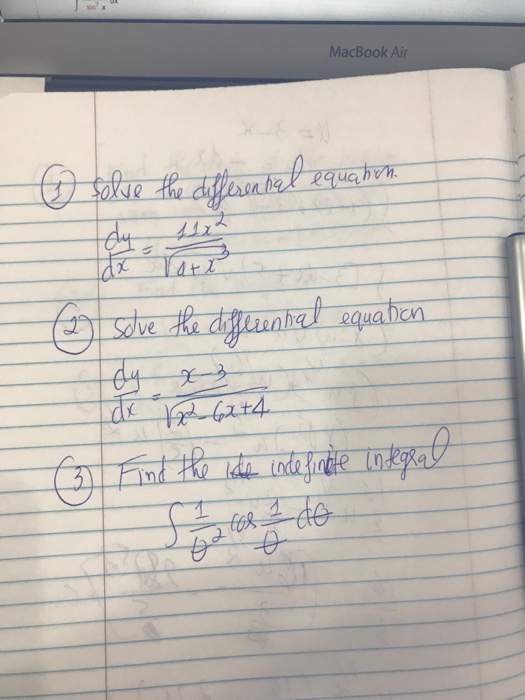 MacBook Air
① Solve the differential equation.
dy/dx = 11x²/√(a+x³)
② Solve the differential equation
dy/dx = x-3/√(x²-6x+4)
③ Find the indefinite integral
∫ 1/θ² cos 1/θ dθ